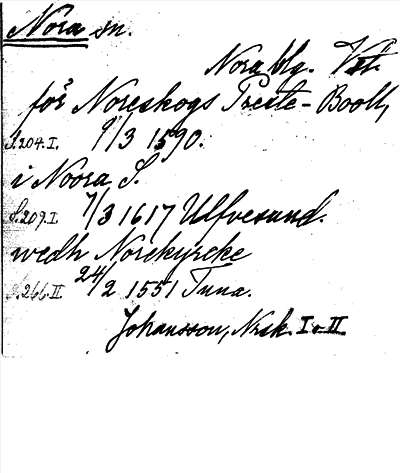 Nora sn.
Nora blg. Vstl.
för Noreskogs Preste-Booll,
S.204.I. 9/3 1590.
i Noora S.
S.209.I 7/3 1617 Ulfvesund.
wedh Norekyrcke
S.266.II 24/2 1551 Tuna.
Johansson, Nrsk. I o II.